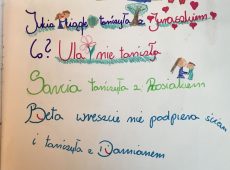 tańczyła z Jurasakiem.
Co? Ula nie tańczyła
Sarcia tańczyła z Basiakiem
Beta wreszcie nie podpiera ścian
i tańczyła z Damianem